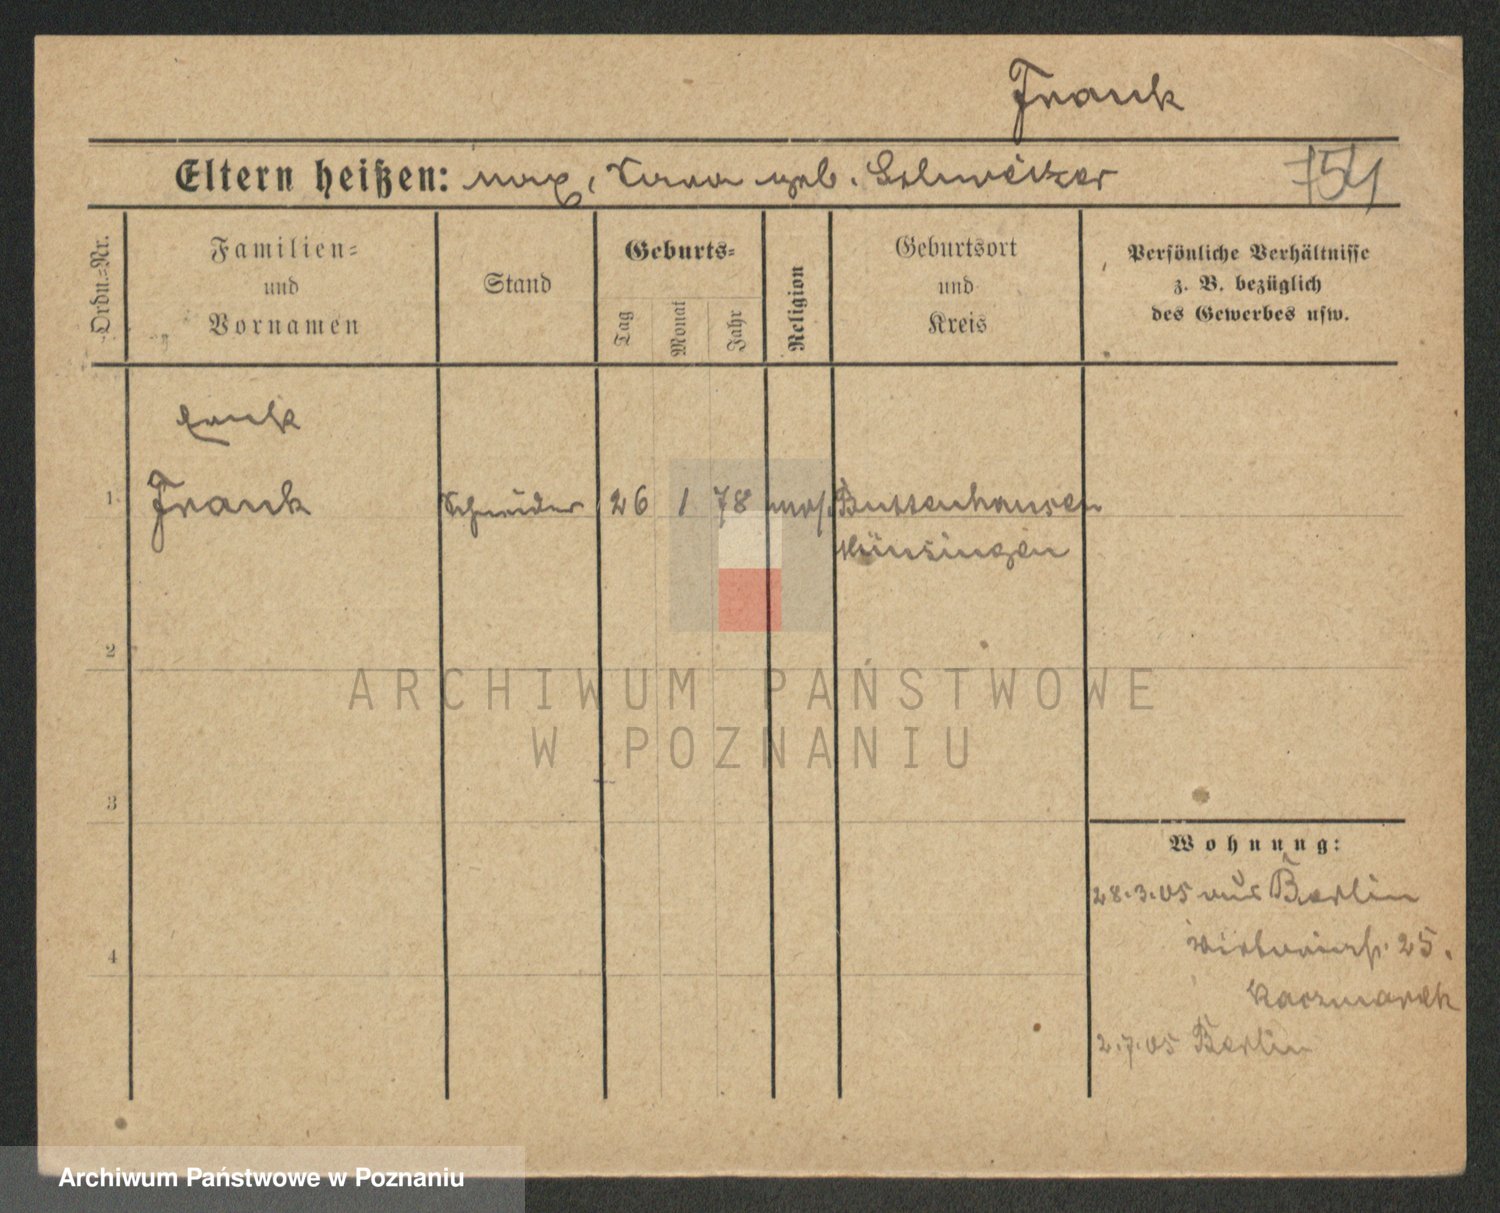 Frank
Eltern heißen: Max, Sara geb. Schweizer
754
Ordn.=Nr.
Familien=
und
Vornamen
Stand
Geburts=
Tag
Monat
Jahr
Religion
Geburtsort
und
Kreis
Persönliche Verhältnisse
z. B. bezüglich
des Gewerbes usw.
1 Frank Schneider 26 1 78 mos. Buttenhausen
Münsingen
2
3
4
Wohnung:
28.3.05 aus Berlin
25.
Kaczmarek
2.7.05 Berlin
ARCHIWUM PAŃSTWOWE
W POZNANIU
Archiwum Państwowe w Poznaniu